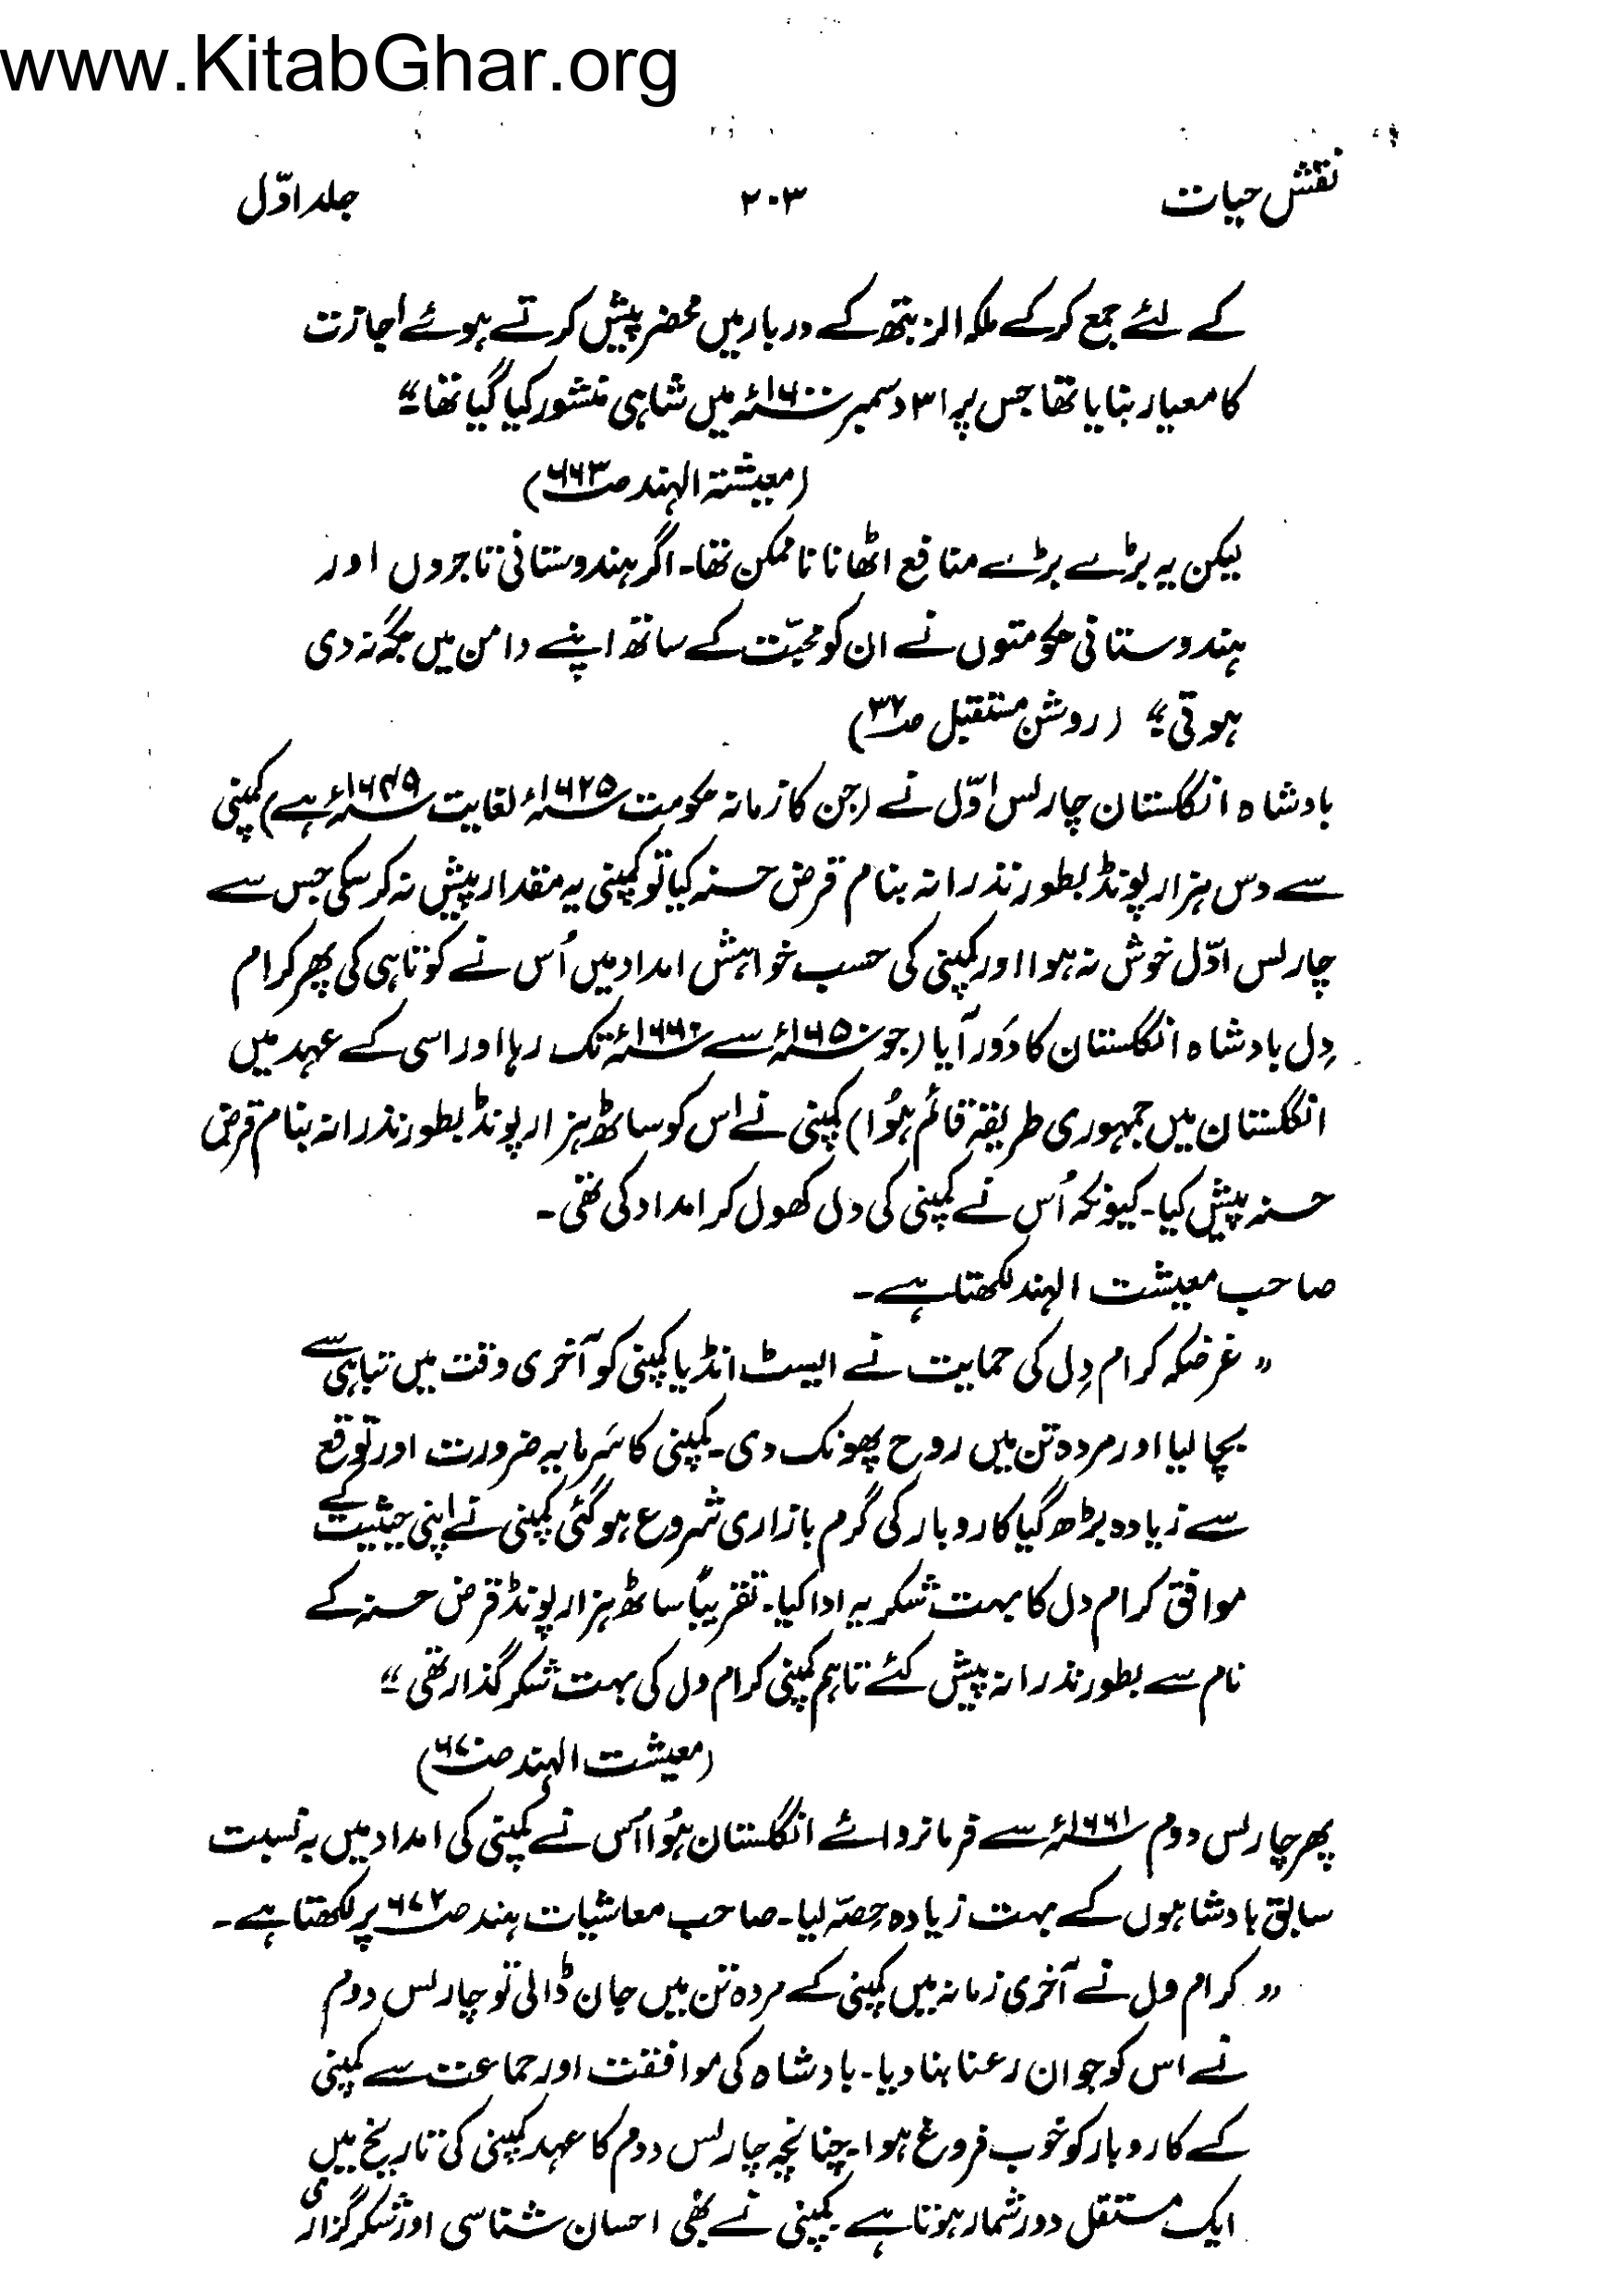 www.KitabGhar.org
نقش حیات ۲۰۳ جلد اوّل
کے لئے جمع کرکے ملکہ الزبتھ کے دربار میں محضر پیش کرتے ہوئے اجازت
کا معیار بنایا تھا جس پر ۳۱ دسمبر ۱۶۰۰ء میں شاہی منشور کیا گیا تھا۔"
(معیشتہ الہند ص۶۶۳)
لیکن یہ بڑے بڑے منافع اٹھانا ناممکن تھا۔ اگر ہندوستانی تاجروں اور
ہندوستانی حکومتوں نے ان کو محبّت کے ساتھ اپنے دامن میں جگہ نہ دی
ہوتی۔" (روشن مستقبل ص۳۷)
بادشاہ انگلستان چارلس اوّل نے (جن کا زمانہ حکومت ۱۶۲۵ء لغایت ۱۶۴۹ء ہے) کمپنی
سے دس ہزار پونڈ بطور نذرانہ بنام قرض حسنہ کیا تو کمپنی یہ مقدار پیش نہ کر سکی جس سے
چارلس اوّل خوش نہ ہوا اور کمپنی کی حسب خواہش امداد میں اُس نے کوتاہی کی پھر کرام
دِل بادشاہ انگلستان کا دَور آیا (جو ۱۶۵۰ء سے ۱۶۶۰ء تک رہا اور اسی کے عہد میں
انگلستان میں جمہوری طریقہ قائم ہُوا) کمپنی نے اس کو ساٹھ ہزار پونڈ بطور نذرانہ بنام قرض
حسنہ پیش کیا۔ کیونکہ اُس نے کمپنی کی دل کھول کر امداد کی تھی۔
صاحب معیشت الہند لکھتا ہے۔
"غرضکہ کرام دِل کی حمایت نے ایسٹ انڈیا کمپنی کو آخری وقت میں تباہی سے
بچا لیا اور مردہ تن میں روح پھونک دی۔ کمپنی کا سَرمایہ ضرورت اور توقع
سے زیادہ بڑھ گیا کاروبار کی گرم بازاری شروع ہوگئی کمپنی نے اپنی حیثیت کے
موافق کرام دل کا بہت شکریہ ادا کیا۔ تقریباً ساٹھ ہزار پونڈ قرض حسنہ کے
نام سے بطور نذرانہ پیش کئے تاہم کمپنی کرام دل کی بہت شکر گذار تھی۔"
(معیشت الہند ص۶۷۰)
پھر چارلس دوم ۱۶۶۱ء سے فرمانروائے انگلستان ہُوا اُس نے کمپنی کی امداد میں بہ نسبت
سابق بادشاہوں کے بہت زیادہ حِصّہ لیا۔ صاحب معاشیات ہند ص۶۷۲ پر لکھتا ہے۔
"کرام ول نے آخری زمانہ میں کمپنی کے مردہ تن میں جان ڈالی تو چارلس دوم
نے اس کو جوان رعنا بنا دیا۔ بادشاہ کی موافقت اور حماعت سے کمپنی
کے کاروبار کو خوب فروغ ہوا۔ چنانچہ چارلس دوم کا عہد کمپنی کی تاریخ میں
ایک مستقل دور شمار ہوتا ہے۔ کمپنی نے بھی احسان شناسی اور شکر گزاری